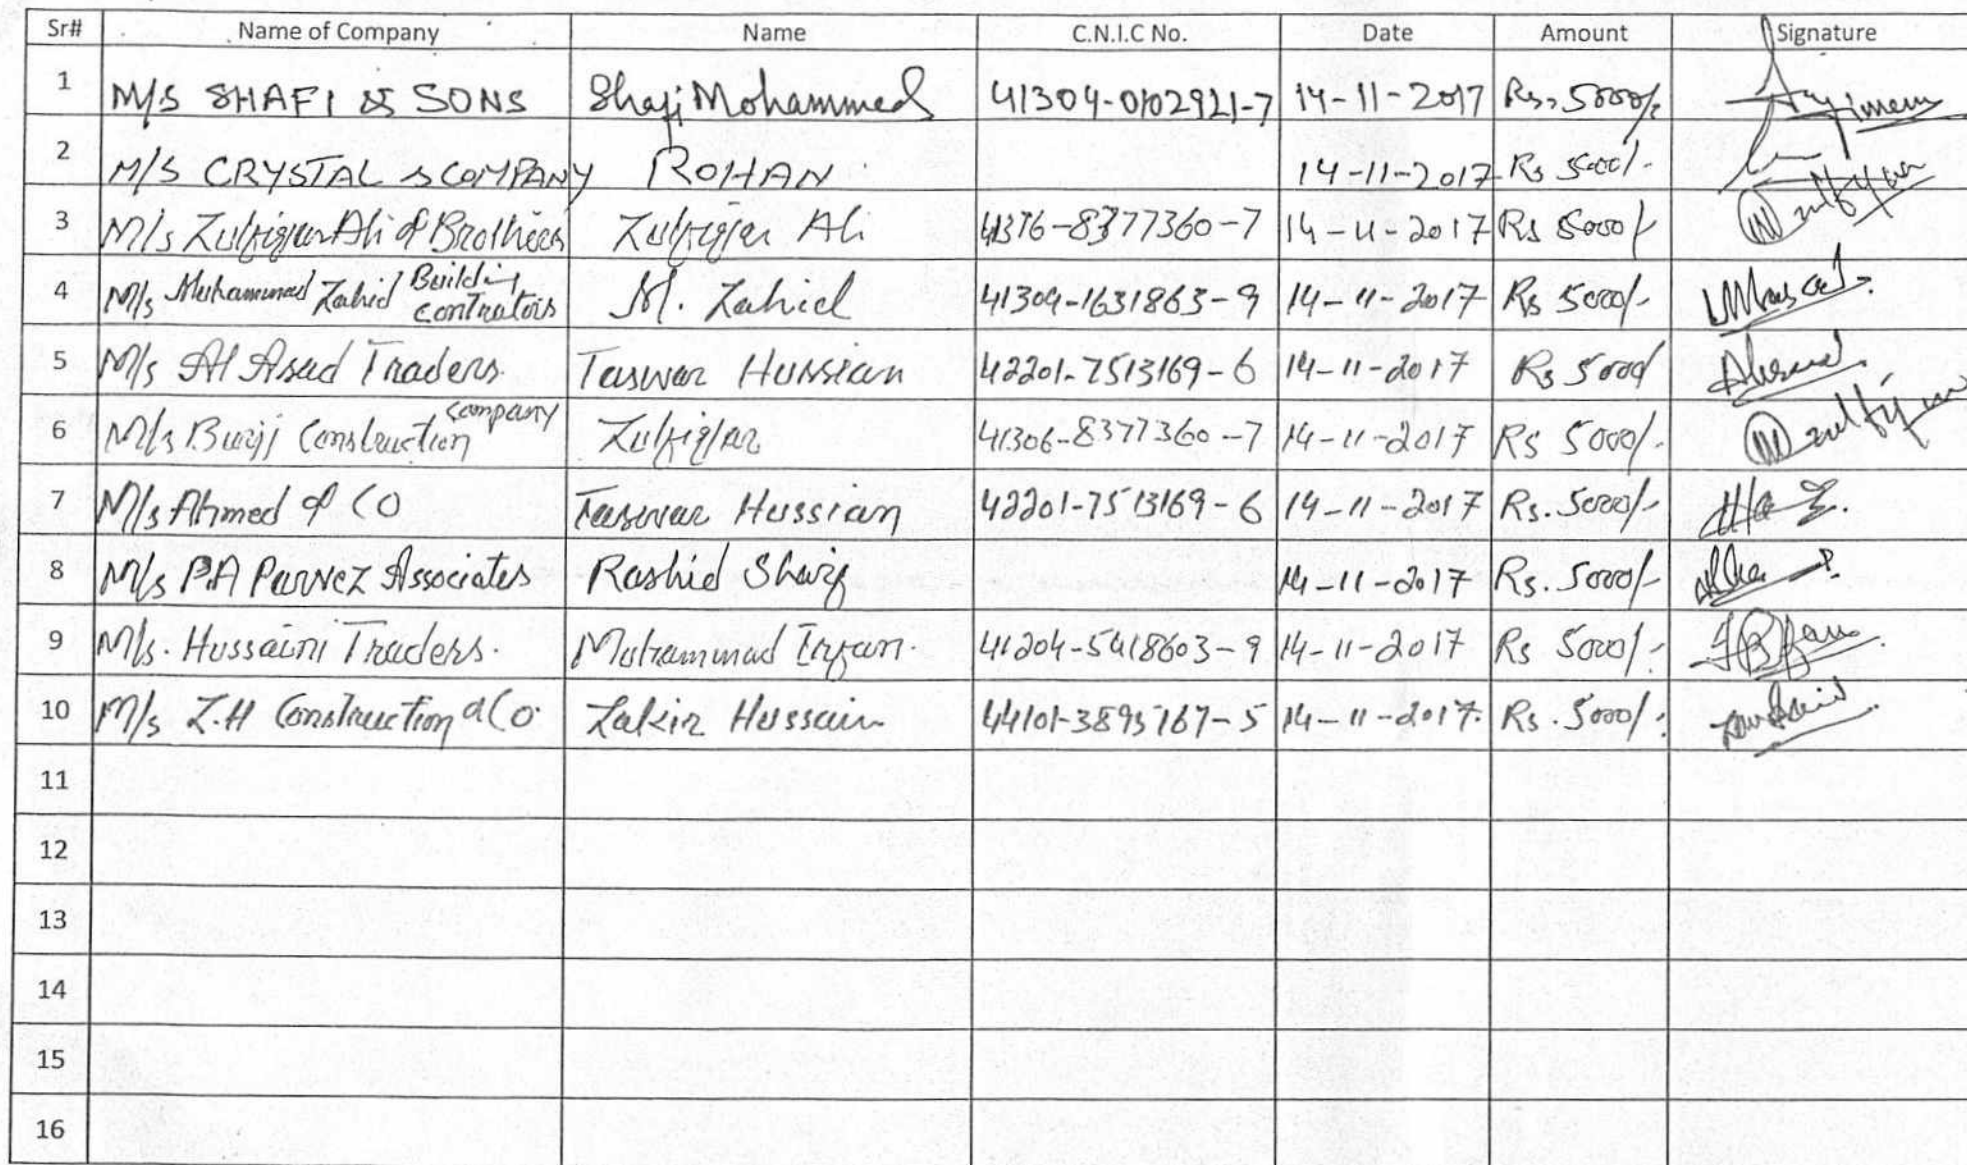 Sr# Name of Company Name C.N.I.C No. Date Amount Signature
1 M/S SHAFI & SONS Shafi Mohammed 41304-0102921-7 14-11-2017 Rs. 5000/-
2 M/S CRYSTAL & COMPANY ROHAN 14-11-2017 Rs 5000/-
3 M/s Zulfiqar Ali & Brothers Zulfiqar Ali 41376-8377360-7 14-11-2017 Rs 5000/-
4 M/s Muhammad Zahid Building contrators M. Zahid 41304-1631863-9 14-11-2017 Rs 5000/-
5 M/s Al Asad Traders. Taswar Hussian 42201-7513169-6 14-11-2017 Rs 5000/
6 M/s Buriji Construction company Zulfiqar 41306-8377360-7 14-11-2017 Rs 5000/-
7 M/s Ahmed & CO Taswar Hussian 42201-7513169-6 14-11-2017 Rs. 5000/-
8 M/s P.A Parvez Associates Rashid Sharif 14-11-2017 Rs. 5000/-
9 M/s. Hussaini Traders. Muhammad Irfan. 41204-5418603-9 14-11-2017 Rs 5000/-
10 M/s Z.H Construction & Co. Zakir Hussain 44101-3895767-5 14-11-2017. Rs. 5000/-
11
12
13
14
15
16